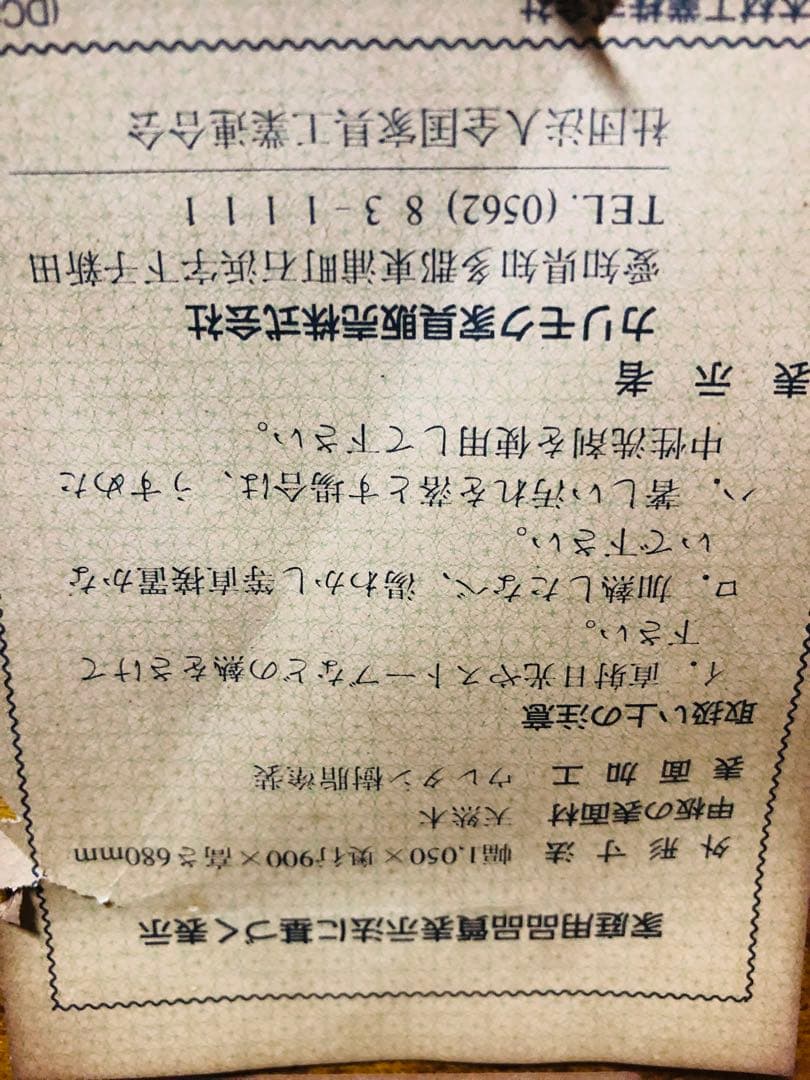 家庭用品品質表示法に基づく表示
外形寸法 幅1,050×奥行900×高さ680mm
甲板の表面材 天然木
表面加工 ウレタン樹脂塗装
取扱い上の注意
イ．直射日光やストーブなどの熱をさけて
下さい。
ロ．加熱したなべ、湯わかし等直接置かな
いで下さい。
ハ．著しい汚れを落とす場合は、うすめた
中性洗剤を使用して下さい。
表示者
カリモク家具販売株式会社
愛知県知多郡東浦町石浜字下子新田
TEL.(0562) 83-1111
社団法人全国家具工業連合会
木材工業株式会社 (DC